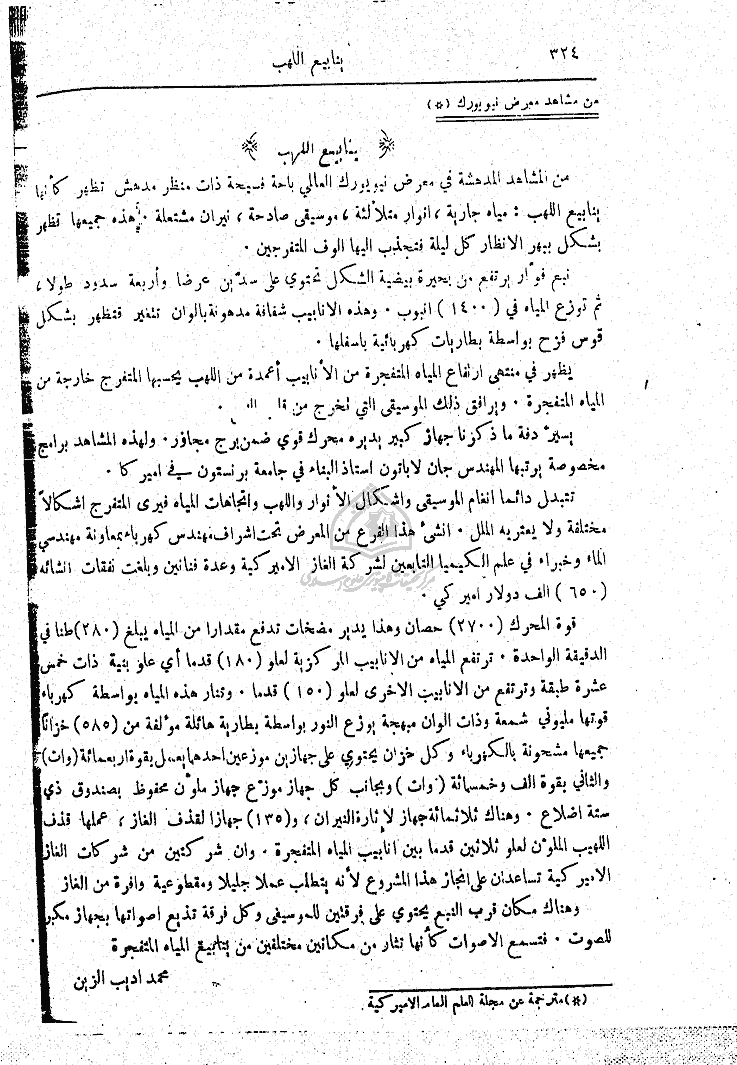 ٣٢٤
ينابيع اللهب
من مشاهد معرض نيويورك (*)
ينابيع اللهب
من المشاهد المدهشة في معرض نيويورك العالمي باحة فسيحة ذات منظر مدهش تظهر كأنها
ينابيع اللهب : مياه جارية ، انوار متلألئة ، موسيقى صادحة ، نيران مشتعلة . هذه جميعها تظهر
بشكل يبهر الانظار كل ليلة فتجذب اليها الوف المتفرجين .
نبع فوّار يرتفع من بحيرة بيضية الشكل تحتوي على سدّين عرضا وأربعة سدود طولا ،
ثم توزع المياه في ( ١٤٠٠ ) انبوب . وهذه الانابيب شفافة مدهونة بالوان تتغير فتظهر بشكل
قوس قزح بواسطة بطاريات كهربائية باسفلها .
يظهر في منتهى ارتفاع المياه المتفجرة من الأنابيب أعمدة من اللهب يحسبها المتفرج خارجة من
المياه المتفجرة . ويرافق ذلك الموسيقى التي تخرج من
يسيرّ دفة ما ذكرنا جهاز كبير يديره محرك قوي ضمن برج مجاور . ولهذه المشاهد برامج
مخصوصة يرتبها المهندس جان لاباتون استاذ البناء في جامعة برنستون في اميركا .
تتبدل دائما انغام الموسيقى واشكال الأنوار واللهب واتجاهات المياه فيرى المتفرج اشكالاً
مختلفة ولا يعتريه الملل . انشئ هذا الفرع من المعرض تحت اشراف مهندس كهرباء بمعاونة مهندسي
الماء وخبراء في علم الكيميا التابعين لشركة الغاز الاميركية وعدة فنانين وبلغت نفقات انشائه
( ٦٥٠ ) الف دولار اميركي .
قوة المحرك (٢٧٠٠) حصان وهذا يدير مضخات تدفع مقدارا من المياه يبلغ (٢٨٠) طنا في
الدقيقة الواحدة . ترتفع المياه من الانابيب المركزية لعلو (١٨٠) قدما أي علو بنية ذات خمس
عشرة طبقة وترتفع من الانابيب الاخرى لعلو (١٥٠ ) قدما . وتنار هذه المياه بواسطة كهرباء
قوتها مليوني شمعة وذات الوان مبهجة يوزع النور بواسطة بطارية هائلة مؤلفة من (٥٨٥) خزانًا
جميعها مشحونة بالكهرباء وكل خزان يحتوي على جهازين موزعين احدهما يعمل بقوة اربعمائة (وات)
والثاني بقوة الف وخمسمائة ( وات ) وبجانب كل جهاز موزّع جهاز ملوّن محفوظ بصندوق ذي
ستة اضلاع . وهناك ثلاثمائة جهاز لاثارة النيران ، و(١٣٥) جهازا لقذف الغاز ، عملها قذف
اللهيب الملوّن لعلو ثلاثين قدما بين انابيب المياه المتفجرة . وان شركتين من شركات الغاز
الاميركية تساعدان على انجاز هذا المشروع لأنه يتطلب عملا جليلا ومقطوعية وافرة من الغاز
وهناك مكان قرب النبع يحتوي على فرقتين للموسيقى وكل فرقة تذيع اصواتها بجهاز مكبر
للصوت . فتسمع الاصوات كأنها تثار من مكانين مختلفين من ينابيع المياه المتفجرة
محمد اديب الزين
(*) مترجمة عن مجلة العلم العام الاميركية .